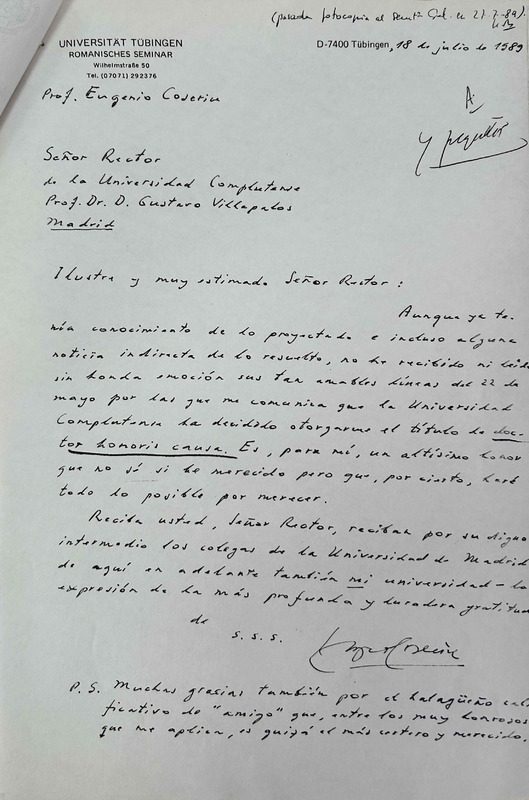 (pasada fotocopia al Secret. Gral. el 21-7-89).
UNIVERSITÄT TÜBINGEN
ROMANISCHES SEMINAR
Wilhelmstraße 50
Tel. (07071) 292376
D-7400 Tübingen, 18 de julio de 1989
Prof. Eugenio Coseriu
A
Señor Rector
de la Universidad Complutense
Prof. Dr. D. Gustavo Villapalos
Madrid
Ilustre y muy estimado Señor Rector:
Aunque ya te-
nía conocimiento de lo proyectado e incluso alguna
noticia indirecta de lo resuelto, no he recibido ni leído
sin honda emoción sus tan amables líneas del 22 de
mayo por las que me comunica que la Universidad
Complutense ha decidido otorgarme el título de doc-
tor honoris causa. Es, para mí, un altísimo honor
que no sé si he merecido pero que, por cierto, haré
todo lo posible por merecer.
Reciba usted, Señor Rector, reciban por su digno
intermedio los colegas de la Universidad de Madrid –
de aquí en adelante también mi universidad – la
expresión de la más profunda y duradera gratitud
de
s. s. s.
P. S. Muchas gracias también por el halagüeño cali-
ficativo de "amigo" que, entre los muy honrosos
que me aplica, es quizá el más certero y merecido.